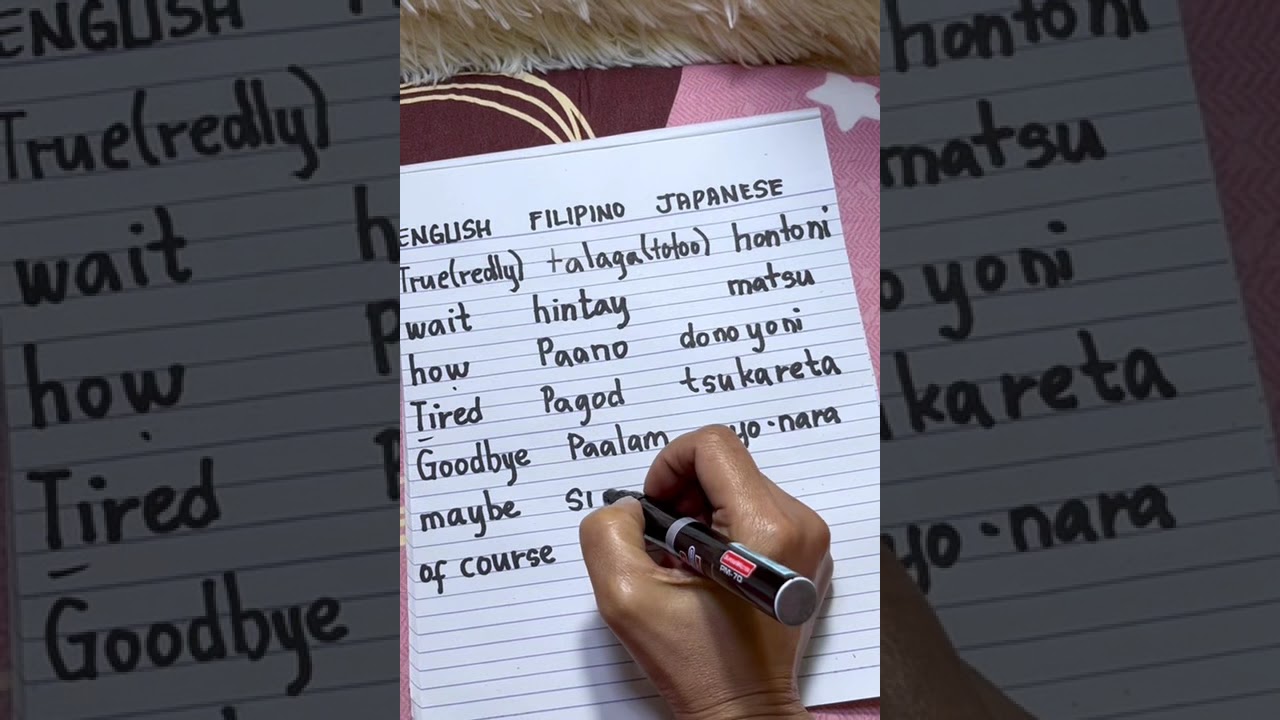 ENGLISH FILIPINO JAPANESE
True(redly) talaga(totoo) hontoni
wait hintay matsu
how Paano donoyoni
Tired Pagod tsukareta
Goodbye Paalam yo-nara
maybe SI
of course
PM-70